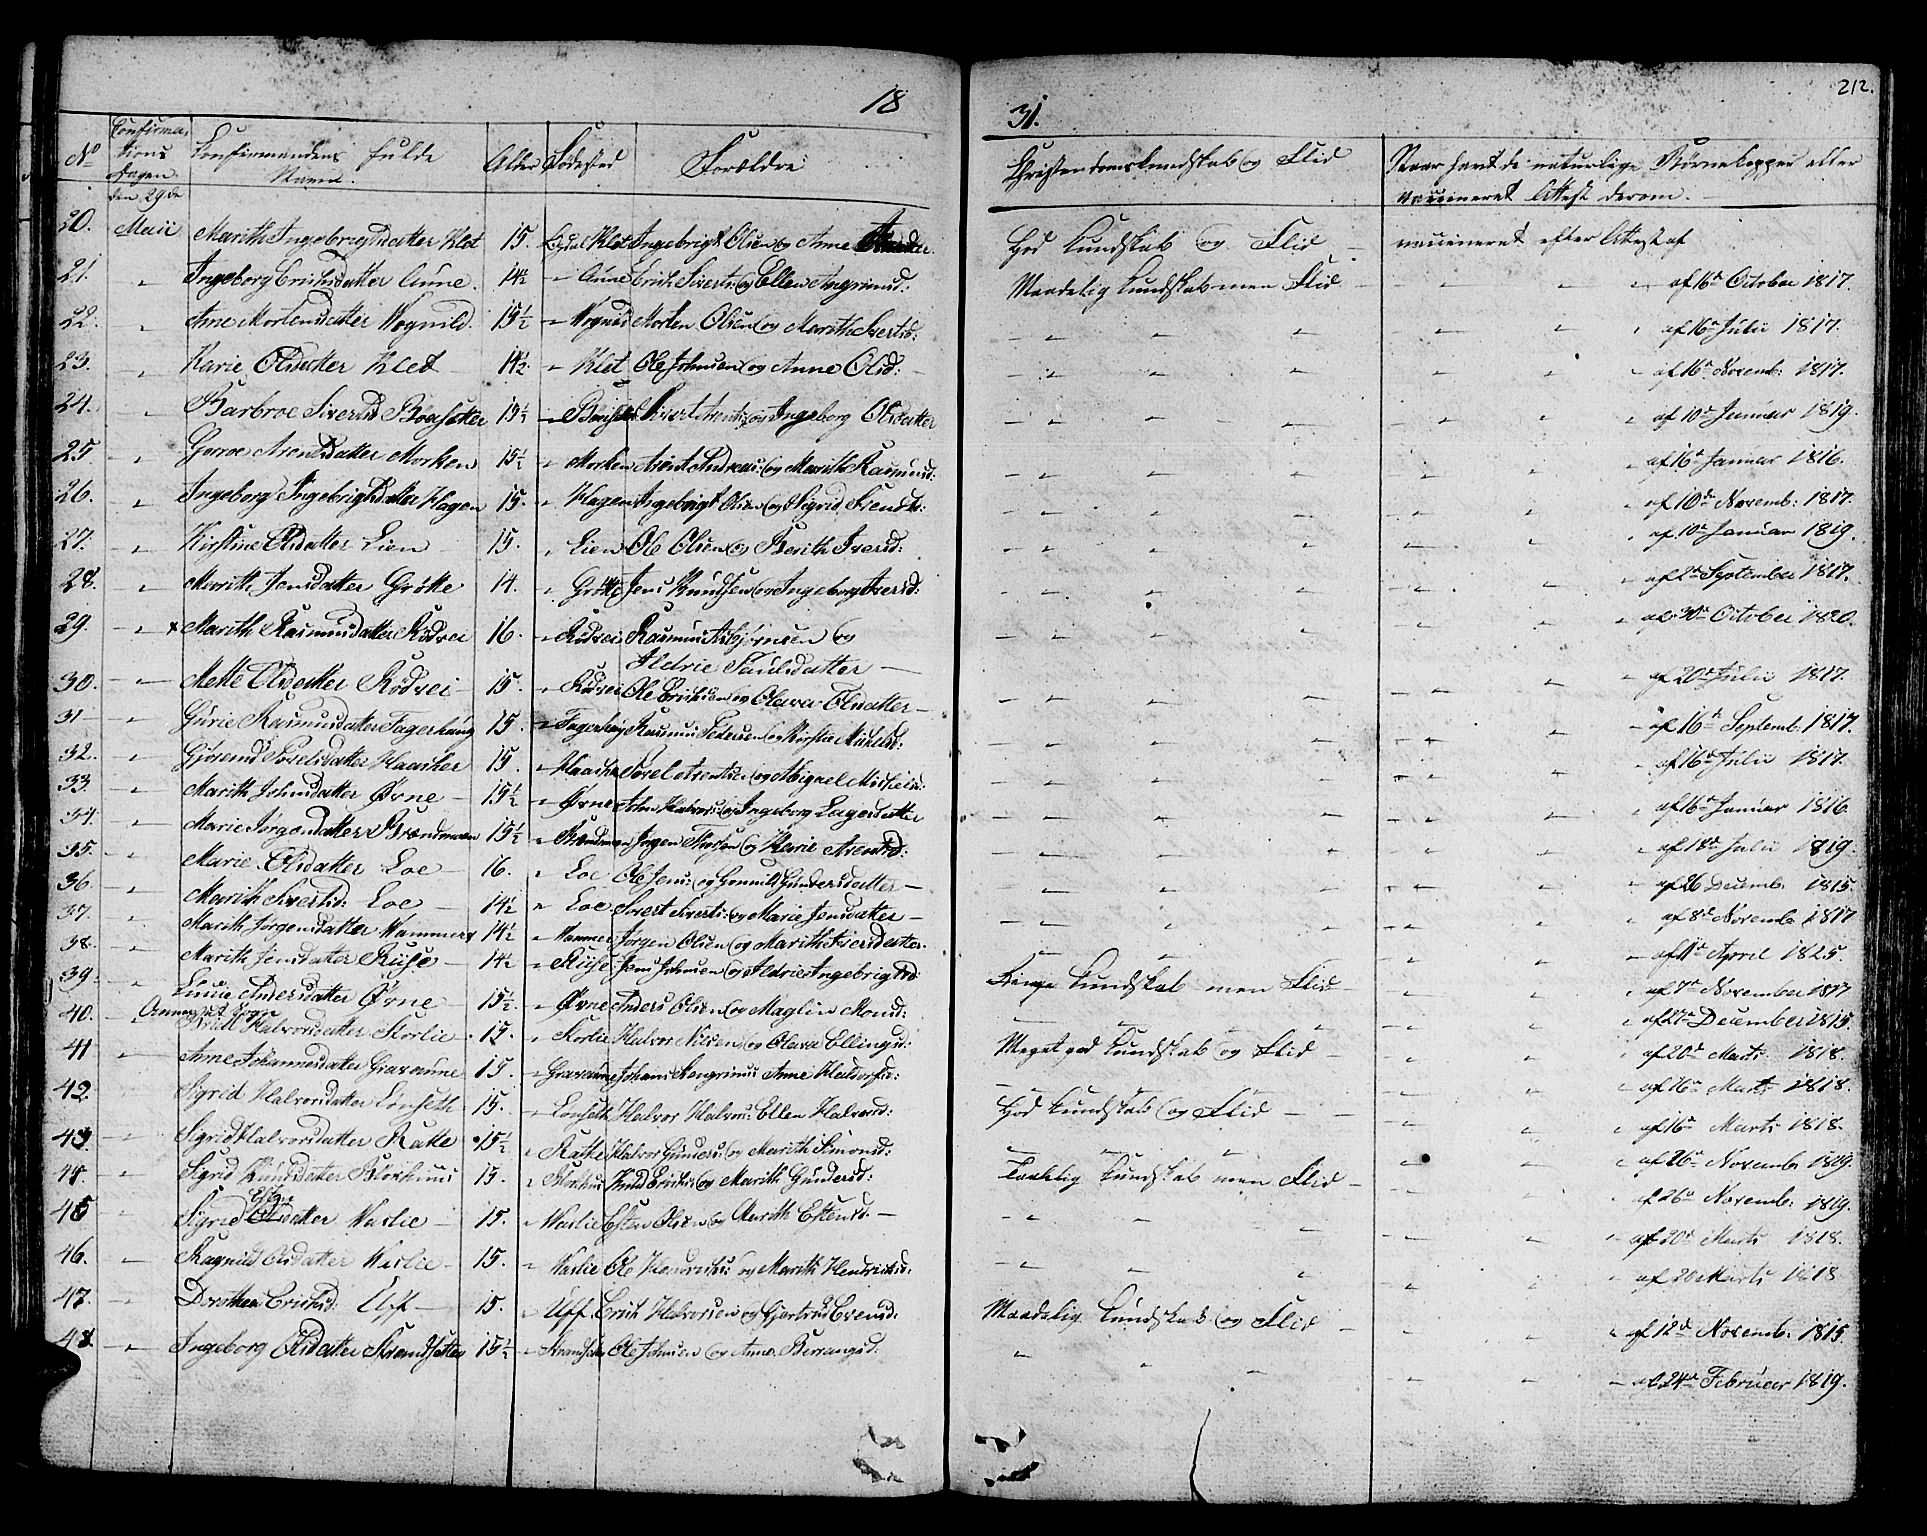 18
31.
212.
No Confirmations Dagen Confirmandens fulde Navne. Alder Fødested Forældre Christendomskundskab og Flid Naar havt de naturlige Børnekopper eller vaccineret Attest derom.
den 29de
20. Maii Marith Ingebrigtsdatter Klet 15. Opdal Klet Ingebrigt Olsen og Anne God Kundskab og Flid vaccineret efter Attest af
21. " Ingeborg Erichsdatter Aune. 14½ " Aune Erich Siverts: og Ellen Arngrimsd: Maadelig Kundskab men Flid af 16de October 1817.
22. " Ane Mortensdatter Wognild. 15½ " Wognild Morten Olsen og Marith Ivertsd: af 16de Julii 1817.
23. " Karie Olsdatter Klet 14½ " Klet Ole Johnsen og Anne Olsd: af 16de Novemb: 1817.
24. " Barbroe Sivertsd Böesetter 15½ " Sivert Arents: og Ingeborg Olsdatter af 10de Januar 1819.
25. " Goroe Arentsdatter Morken 15½ " Morken Arent Andreas: og Marith Rasmusd: af 16de Januar 1816.
26. " Ingeborg Ingebrigtsdatter Hagen 15. " Hagen Ingebrigt Olsen og Sigrid Svendsd: af 10de Novemb: 1817.
27. " Kirstine Olsdatter Lien 15. " Lien Ole Olsen og Berith Iversd: af 10de Januar 1819.
28. " Marith Jensdatter Grötte 14. " Grötte Jens Knudsen og Ingeborg Iversd: af 2de September 1817.
29. " x Marith Rasmusdatter Rödvei 16. " Rödvei Rasmus Asbjörnsen og af 30te October 1820.
Aldrie Paulsdatter
30. " Mette Olsdatter Rödvei 15. " Rödvei Ole Erichsen og Olava Olsdatter af 20de Julii 1817.
31 " Gurie Rasmusdatter Fagerhaug 15. " Rasmus Pedersen og Kirstie Mikelsd: af 16de Septemb: 1817.
32. " Gjörend Povelsdatter Haaker 15. " Povel Arentsen og Abigael Michelsd: af 16de Julii 1817.
33. " Marith Johnsdatter Øvne 15½ " Øvne John Halvors: og Ingeborg af 16de Januar 1816.
34. " Marie Jörgensdatter Brændmoen 15½ " Jörgen Thorsen og Karie Arentsd: af 18de Julii 1819.
35. " Marie Olsdatter Loe 16. " Loe Ole Jens: og Gonnild Gundersdatter af 26 Decemb: 1815.
36 " Marith Sivertsd: Loe 14½ " Loe Sivert Siverts: og Marie Jensdatter af 8de Novembr 1817
37. " Marith Jörgensdatter Hammer 14½ " Hammer Jörgen Olsen og Marith Iversdatter. af 11te April 1825.
38. " Marith Jensdatter Rüse 14½ " Rüse Jens Johnsen og Aldrie Ingebrigtsd: Ringe Kundskab men Flid af 7de November 1817
39. " Andersdatter Øvne 15½ " Øvne Anders Olsen og Maglin Monsd: af 27de December 1815.
40. " Annexets Sogn
Halvorsdatter Storlie 15. " Storlie Halvor Nilsen og Olava Ellingsd: Meget god Kundskab og Flid af 20de Marts 1818.
41 " Anne Johannesdatter Gravaune 15. " Gravaune Johans Arngrims: Anne Haldorsd: af 16de Marts 1818.
42. " Sigrid Halvorsdatter Lönseth 15. " Lönseth Halvor Halvors: Ellen Halvorsd: God Kundskab og Flid af 16de Marts 1818.
43. " Sigrid Halvorsdatter Ratte 15½ " Ratte Halvor Gunders: og Marith Simonsd: af 26de November 1819.
44. " Sigrid Knudsdatter 15. " Knud Erichs: og Marith Gundersd: Taalelig Kundskab men Flid af 26de Novemb: 1819.
45 " Sigrid Esten datter Waslie 15. " Waslie Esten Olsen og Marith Estensd. af 20de Marts 1818.
46. " Ragnild Olsdatter Waslie 15. " Waslie Ole Hendrichs: og Marith Hendrichsd: af 20 Marts 1818
47. " Dorothea Erichsd: Uff 15. " Uff. Erich Halvorsen og Gjertrud Evensd: Maadelig Kundskab og Flid af 12te Novemb: 1815
48. " Ingeborg Olsdatter Strandsetter 15½ " Ole Johnsen og Anne af 24de Februar 1819.